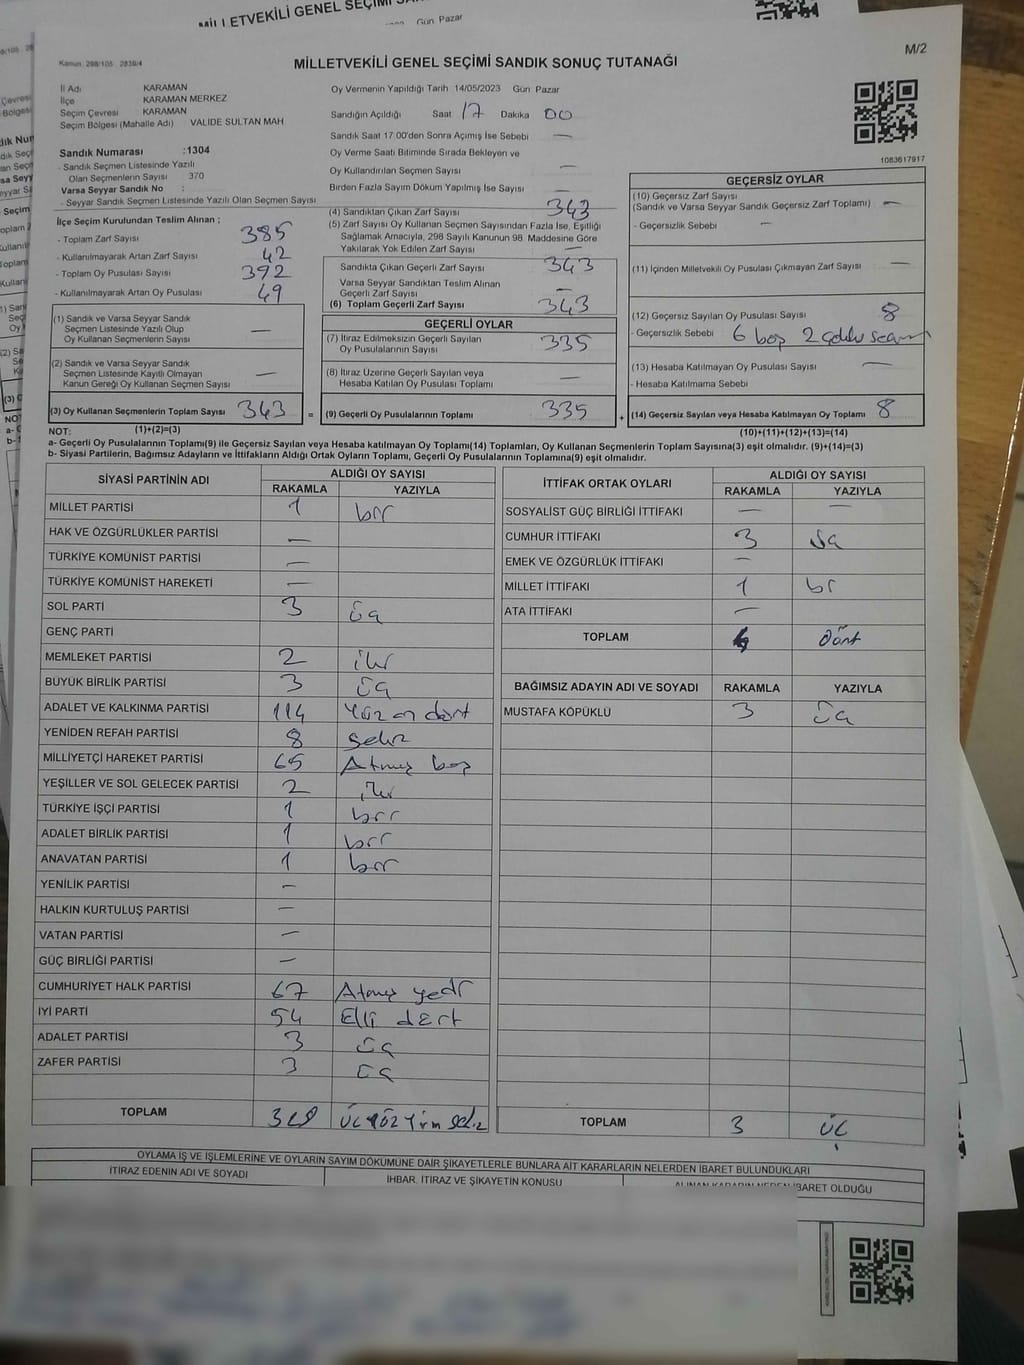 MİLLETVEKİLİ GENEL SEÇİMİ
Gün Pazar
M/2
Kanun: 298/105 2839/4
MİLLETVEKİLİ GENEL SEÇİMİ SANDIK SONUÇ TUTANAĞI
İl Adı KARAMAN
İlçe KARAMAN MERKEZ
Seçim Çevresi KARAMAN
Seçim Bölgesi (Mahalle Adı) VALİDE SULTAN MAH
Sandık Numarası :1304
- Sandık Seçmen Listesinde Yazılı
Olan Seçmenlerin Sayısı 370
Varsa Seyyar Sandık No :
- Seyyar Sandık Seçmen Listesinde Yazılı Olan Seçmen Sayısı
Oy Vermenin Yapıldığı Tarih 14/05/2023 Gün Pazar
Sandığın Açıldığı Saat 17 Dakika 00
Sandık Saat 17:00'den Sonra Açımış İse Sebebi —
Oy Verme Saati Bitiminde Sırada Bekleyen ve
Oy Kullandırılan Seçmen Sayısı —
Birden Fazla Sayım Döküm Yapılmış İse Sayısı —
1083617917
İlçe Seçim Kurulundan Teslim Alınan ;
- Toplam Zarf Sayısı 385
- Kullanılmayarak Artan Zarf Sayısı 42
- Toplam Oy Pusulası Sayısı 392
- Kullanılmayarak Artan Oy Pusulası 49
(1) Sandık ve Varsa Seyyar Sandık
Seçmen Listesinde Yazılı Olup
Oy Kullanan Seçmenlerin Sayısı —
(2) Sandık ve Varsa Seyyar Sandık
Seçmen Listesinde Kayıtlı Olmayan
Kanun Gereği Oy Kullanan Seçmen Sayısı —
(3) Oy Kullanan Seçmenlerin Toplam Sayısı 343 =
(4) Sandıktan Çıkan Zarf Sayısı 343
(5) Zarf Sayısı Oy Kullanan Seçmen Sayısından Fazla İse, Eşitliği
Sağlamak Amacıyla, 298 Sayılı Kanunun 98. Maddesine Göre
Yakılarak Yok Edilen Zarf Sayısı —
Sandıkta Çıkan Geçerli Zarf Sayısı 343
Varsa Seyyar Sandıktan Teslim Alınan
Geçerli Zarf Sayısı —
(6) Toplam Geçerli Zarf Sayısı 343
GEÇERLİ OYLAR
(7) İtiraz Edilmeksizin Geçerli Sayılan
Oy Pusulalarının Sayısı 335
(8) İtiraz Üzerine Geçerli Sayılan veya
Hesaba Katılan Oy Pusulası Toplamı —
(9) Geçerli Oy Pusulalarının Toplamı 335 +
GEÇERSİZ OYLAR
(10) Geçersiz Zarf Sayısı
(Sandık ve Varsa Seyyar Sandık Geçersiz Zarf Toplamı) —
- Geçersizlik Sebebi —
(11) İçinden Milletvekili Oy Pusulası Çıkmayan Zarf Sayısı —
(12) Geçersiz Sayılan Oy Pusulası Sayısı 8
- Geçersizlik Sebebi 6 boş 2
(13) Hesaba Katılmayan Oy Pusulası Sayısı —
- Hesaba Katılmama Sebebi
(14) Geçersiz Sayılan veya Hesaba Katılmayan Oy Toplamı 8
NOT: (1)+(2)=(3) (10)+(11)+(12)+(13)=(14)
a- Geçerli Oy Pusulalarının Toplamı(9) ile Geçersiz Sayılan veya Hesaba katılmayan Oy Toplamı(14) Toplamları, Oy Kullanan Seçmenlerin Toplam Sayısına(3) eşit olmalıdır. (9)+(14)=(3)
b- Siyasi Partilerin, Bağımsız Adayların ve İttifakların Aldığı Ortak Oyların Toplamı, Geçerli Oy Pusulalarının Toplamına(9) eşit olmalıdır.
SİYASİ PARTİNİN ADI ALDIĞI OY SAYISI
RAKAMLA YAZIYLA
MİLLET PARTİSİ 1 bir
HAK VE ÖZGÜRLÜKLER PARTİSİ —
TÜRKİYE KOMÜNİST PARTİSİ —
TÜRKİYE KOMÜNİST HAREKETİ —
SOL PARTİ 3 üç
GENÇ PARTİ
MEMLEKET PARTİSİ 2 iki
BÜYÜK BİRLİK PARTİSİ 3 üç
ADALET VE KALKINMA PARTİSİ 114 Yüz on dört
YENİDEN REFAH PARTİSİ 8 sekiz
MİLLİYETÇİ HAREKET PARTİSİ 65 Atmış beş
YEŞİLLER VE SOL GELECEK PARTİSİ 2 iki
TÜRKİYE İŞÇİ PARTİSİ 1 bir
ADALET BİRLİK PARTİSİ 1 bir
ANAVATAN PARTİSİ 1 bir
YENİLİK PARTİSİ —
HALKIN KURTULUŞ PARTİSİ —
VATAN PARTİSİ —
GÜÇ BİRLİĞİ PARTİSİ —
CUMHURİYET HALK PARTİSİ 67 Atmış yedi
İYİ PARTİ 54 Elli dört
ADALET PARTİSİ 3 üç
ZAFER PARTİSİ 3 üç
TOPLAM 328 ÜÇ YÖZ Yirm sekiz
İTTİFAK ORTAK OYLARI ALDIĞI OY SAYISI
RAKAMLA YAZIYLA
SOSYALİST GÜÇ BİRLİĞİ İTTİFAKI — —
CUMHUR İTTİFAKI 3 üç
EMEK VE ÖZGÜRLÜK İTTİFAKI —
MİLLET İTTİFAKI 1 bir
ATA İTTİFAKI —
TOPLAM 4 dört
BAĞIMSIZ ADAYIN ADI VE SOYADI RAKAMLA YAZIYLA
MUSTAFA KÖPÜKLÜ 3 üç
TOPLAM 3 ÜÇ
OYLAMA İŞ VE İŞLEMLERİNE VE OYLARIN SAYIM DÖKÜMÜNE DAİR ŞİKAYETLERLE BUNLARA AİT KARARLARIN NELERDEN İBARET BULUNDUKLARI
İTİRAZ EDENİN ADI VE SOYADI İHBAR, İTİRAZ VE ŞİKAYETİN KONUSU ALINAN KARARIN NEDEN İBARET OLDUĞU